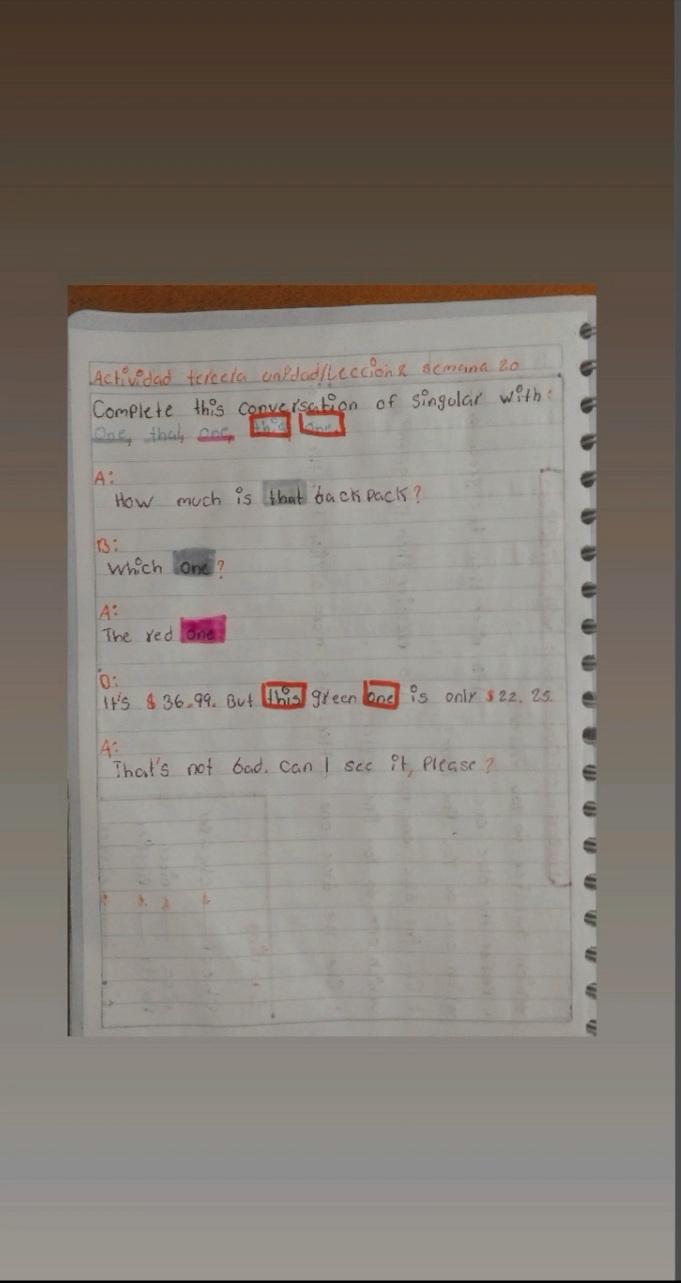 Actividad tercera unidad/Leccion 2 semana 20
Complete this conversation of singular with:
One, that, one, this one.
A:
How much is that backpack?
B:
Which One?
A:
The red One
B:
It's $ 36.99. But this green One is only $22. 25.
A:
That's not bad. Can I see it, Please?